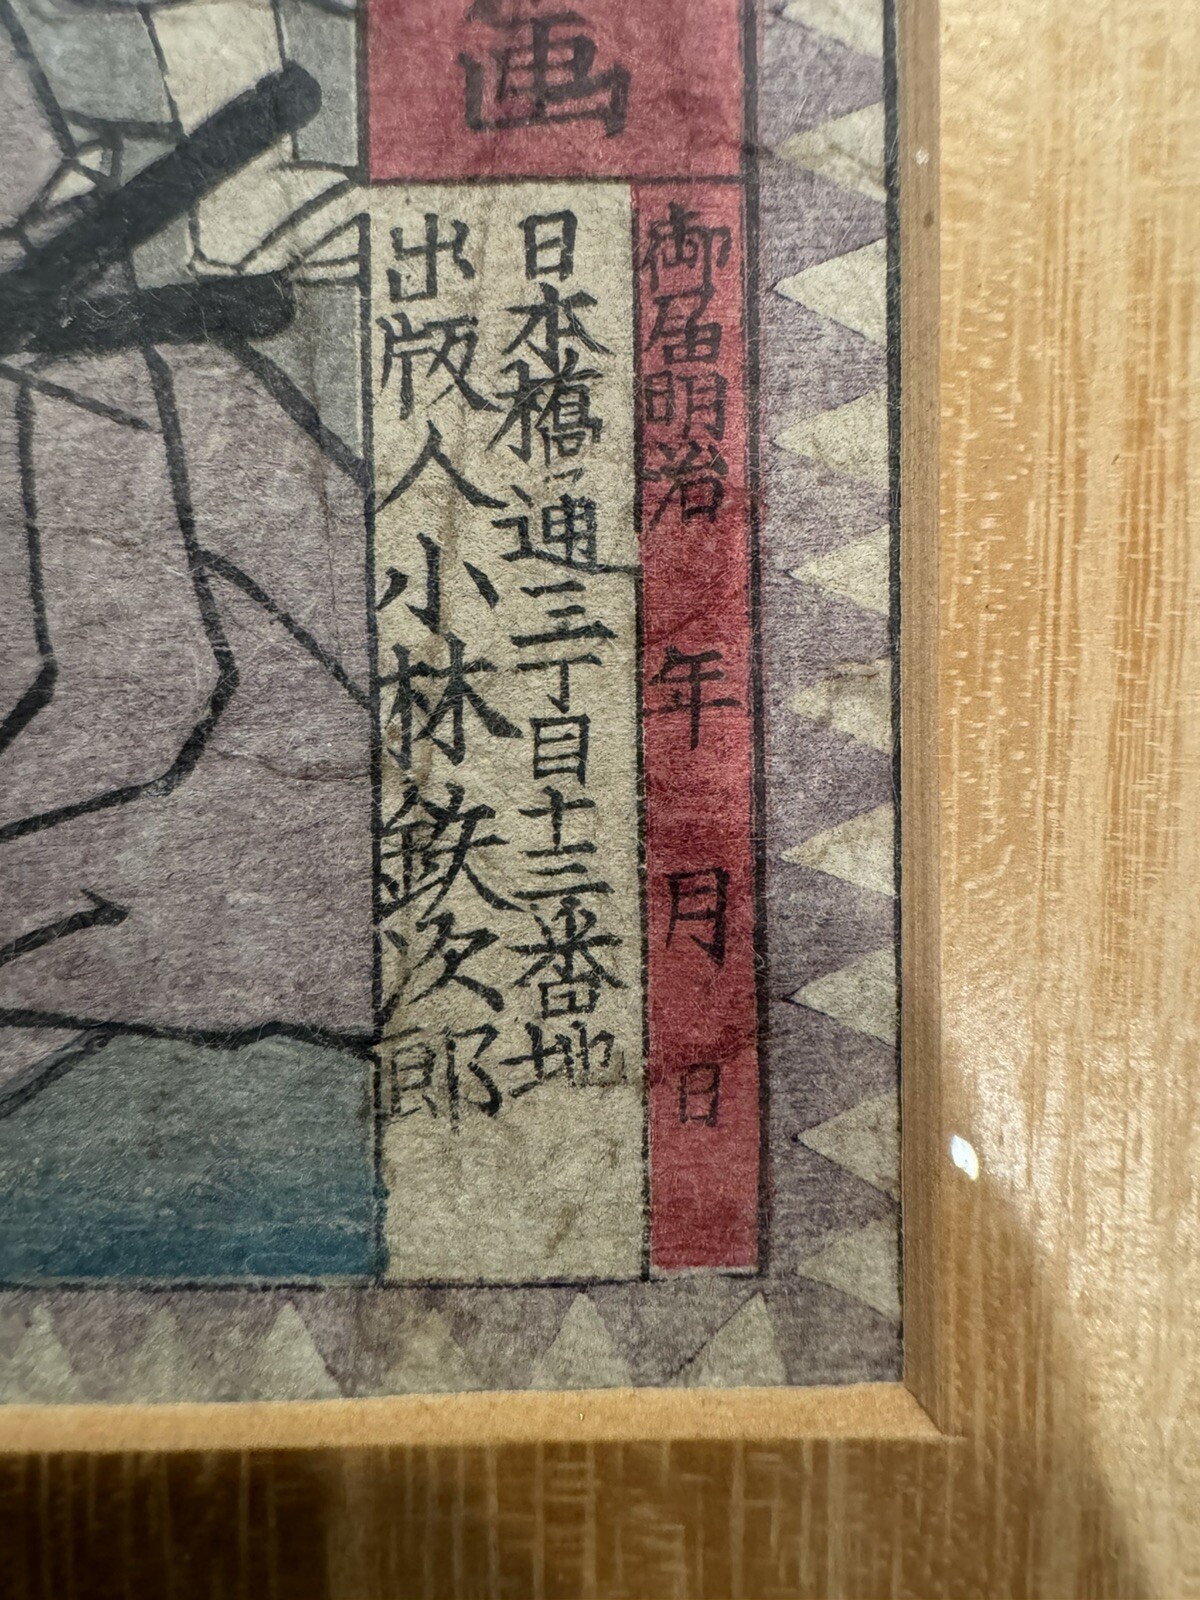 画
御届明治 年 月 日
日本橋通三丁目十三番地
出版人 小林鉄次郎